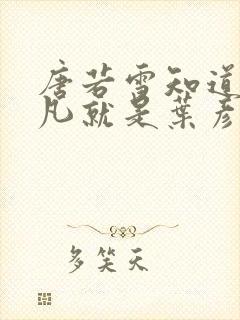 唐若雪知道
凡就是葉彥
多笑天